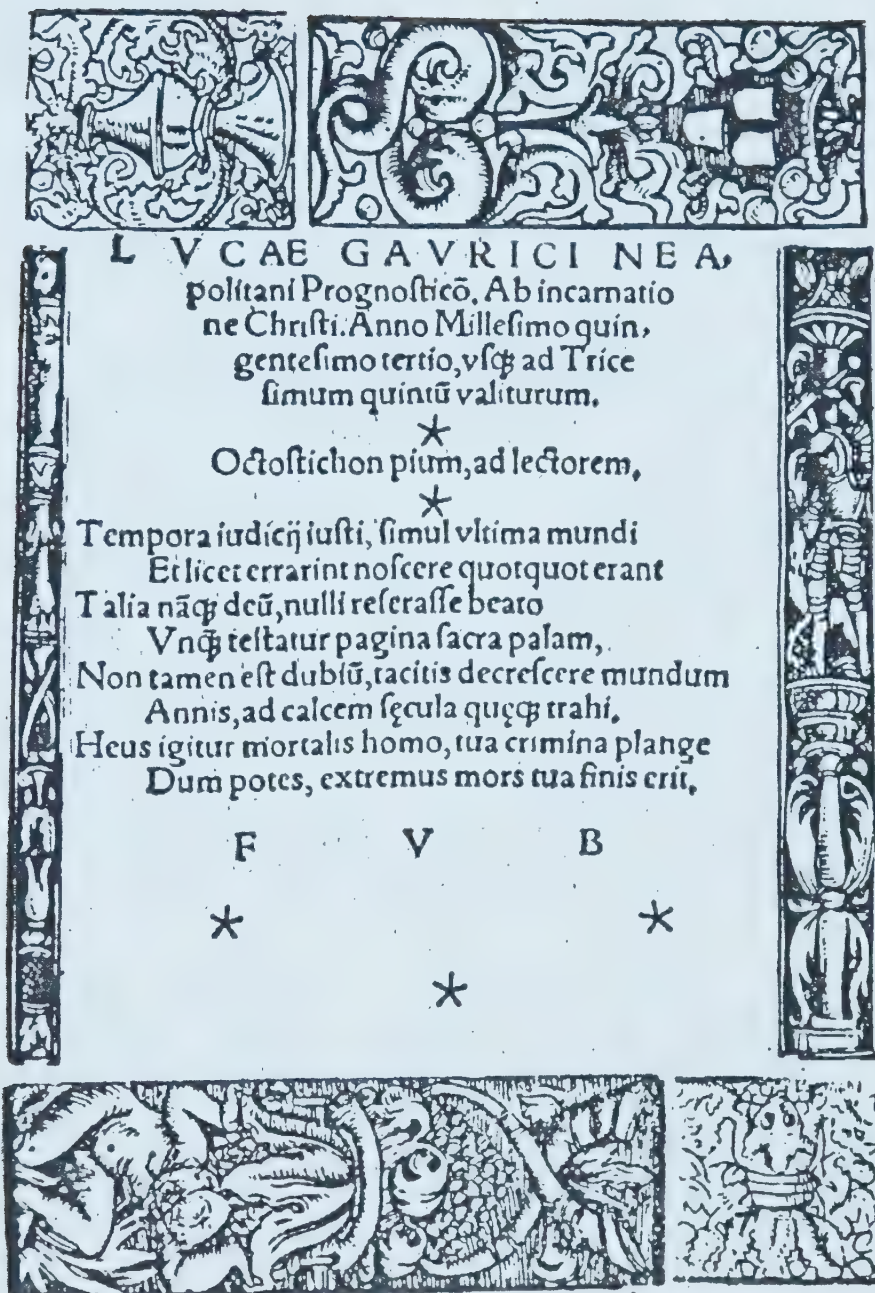 L V C AE G A V R I C I N E A,
politani Prognoſticō. Ab incarnatio
ne Chriſti. Anno Milleſimo quin,
genteſimo tertio, vſqꝫ ad Trice
ſimum quintū valiturum.
*
Octoſtichon pium, ad lectorem,
*
Tempora iudicij iuſti, ſimul vltima mundi
Et licet errarint noſcere quotquot erant
Talia nāqꝫ deū, nulli reſeraſſe beato
Vnqꝫ teſtatur pagina ſacra palam,
Non tamen eſt dubiū, tacitis decreſcere mundum
Annis, ad calcem ſęcula quęqꝫ trahi.
Heus igitur mortalis homo, tua crimina plange
Dum potes, extremus mors tua finis erit.
F V B
* *
*